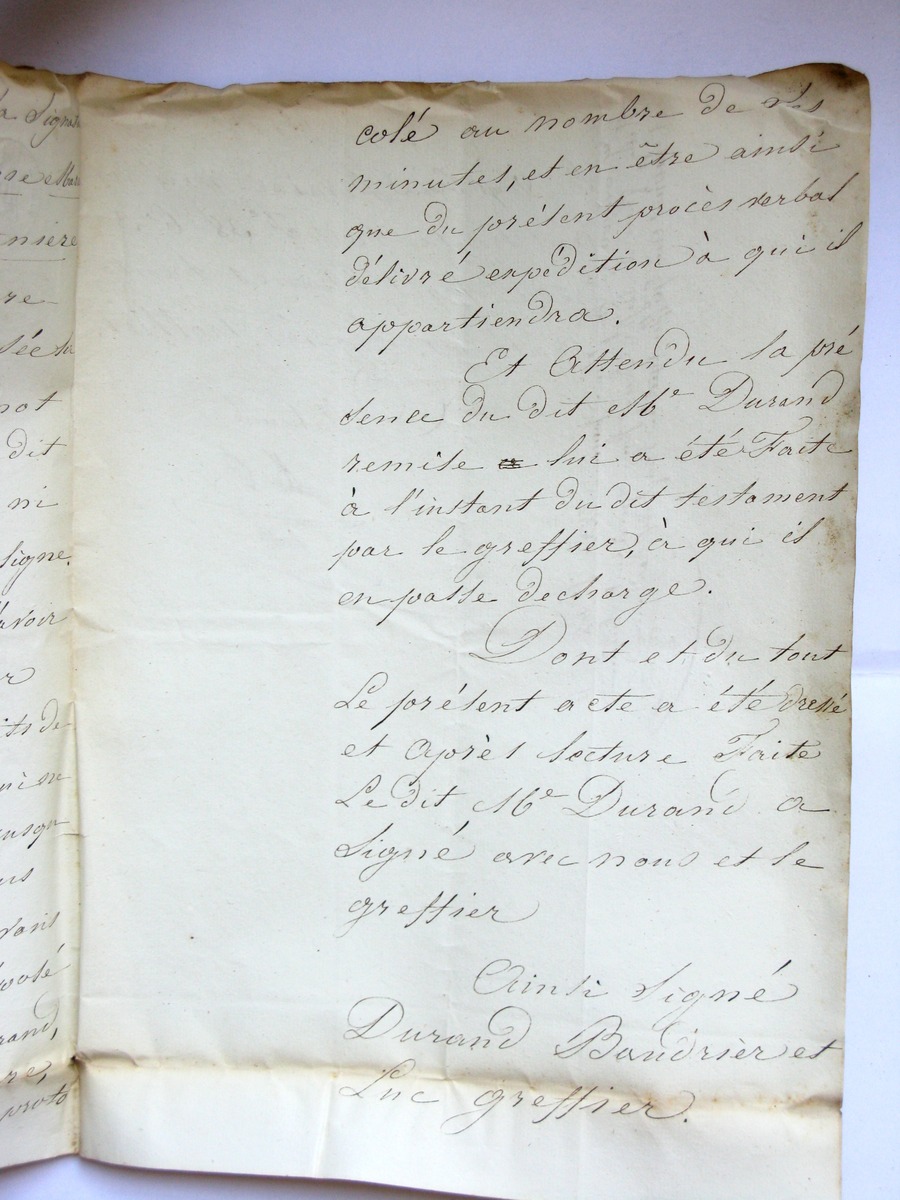 la Signa
re
sée la
not
dit
ni
signe.
avoir
r
its de
usqu
us
rand,
re,
proto
colé au nombre de ses
minutes, et en être ainsi
que du présent procès verbal
délivré expédition à qui il
appartiendra.
Et Attendu la pré
sence du dit Me Durand
remise lui a été Faite
à l'instant du dit testament
par le greffier, à qui il
en passe decharge.
Dont et du tout
Le présent acte a été dressé
et Après lecture Faite
Le dit Me Durand a
Signé avec nous et le
greffier
Ainsi signé
Durand Baudrier et
Luc greffier.